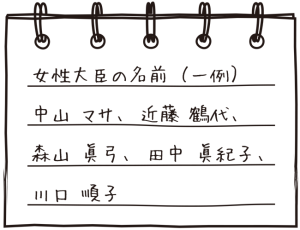 女性大臣の名前（一例）
中山 マサ、近藤 鶴代、
森山 眞弓、田中 眞紀子、
川口 順子